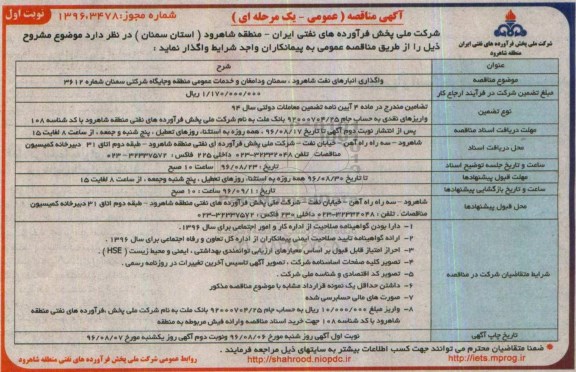 نوبت اول
آگهی مناقصه ( عمومی - یک مرحله ای )
شماره مجوز: ۱۳۹۶،۳۴۷۸
شرکت ملی پخش فرآورده های نفتی ایران
منطقه شاهرود
شرکت ملی پخش فرآورده های نفتی ایران - منطقه شاهرود ( استان سمنان ) در نظر دارد موضوع مشروح
ذیل را از طریق مناقصه عمومی به پیمانکاران واجد شرایط واگذار نماید :
عنوان
شرح
موضوع مناقصه
واگذاری انبارهای نفت شاهرود ، سمنان ودامغان و خدمات عمومی منطقه وجایگاه شرکتی سمنان شماره ۳۶۱۲
مبلغ تضمین شرکت در فرآیند ارجاع کار
۱/۱۷۰/۰۰۰/۰۰۰ ریال
نوع تضمین
تضامین مندرج در ماده ۴ آیین نامه تضمین معاملات دولتی سال ۹۴
واریزهای نقدی به حساب جام ۹۲۰۰۰۷۰۴/۲۵ بانک ملت به نام شرکت ملی پخش فرآورده های نفتی منطقه شاهرود با کد شناسه ۱۰۸
مهلت دریافت اسناد مناقصه
پس از انتشار نوبت دوم آگهی تا تاریخ ۹۶/۰۸/۱۷ ، همه روزه به استثناء روزهای تعطیل ، پنج شنبه و جمعه ، از ساعت ۸ لغایت ۱۵
محل دریافت اسناد
شاهرود - سه راه راه آهن - خیابان نفت - شرکت ملی پخش فرآورده ای نفتی منطقه شاهرود - طبقه دوم اتاق ۳۱ دبیرخانه کمیسیون
مناقصات. تلفن ۳۲۳۳۲۰۴۸-۰۲۳ داخلی ۲۲۵ فاکس: ۳۲۳۳۷۵۷۲-۰۲۳
ساعت و تاریخ جلسه توضیح اسناد
تاریخ : ۹۶/۰۸/۲۳ ساعت ۱۰ صبح
مهلت قبول پیشنهادها
تا تاریخ ۹۶/۰۸/۳۰ همه روزه به استثناء روزهای تعطیل ، پنج شنبه وجمعه ، از ساعت ۸ لغایت ۱۵
ساعت و تاریخ بازگشایی پیشنهادها
تاریخ : ۹۶/۰۹/۱ ساعت : ۱۰ صبح
محل قبول پیشنهادها
شاهرود - سه راه راه آهن - خیابان نفت - شرکت ملی پخش فرآورده های نفتی منطقه شاهرود - طبقه دوم اتاق ۳۱ دبیرخانه کمیسیون
مناقصات . تلفن ۳۲۳۳۲۰۴۸-۰۲۳ داخلی ۲۳۰ فاکس: ۳۲۳۳۷۵۷۲-۰۲۳
شرایط متقاضیان شرکت در مناقصه
۱- دارا بودن گواهینامه صلاحیت از اداره کار و امور اجتماعی برای سال ۱۳۹۶.
۲- ارائه گواهینامه تایید صلاحیت ایمنی پیمانکاران از اداره کل تعاون و رفاه اجتماعی برای سال ۱۳۹۶ .
۳- احراز امتیاز قابل قبول بر اساس معیارهای ارزیابی توانمندی بهداشتی ، ایمنی و محیط زیست ( HSE ) .
۴- تصویر کلیه صفحات اساسنامه شرکت ، تصویر آگهی تاسیس آخرین تغییرات در روزنامه رسمی .
۵- تصویر کد اقتصادی و شناسه ملی شرکت .
۶- داشتن حداقل یک نمونه قرارداد مشابه با موضوع مناقصه مذکور
۷- صورت های مالی حسابرسی شده
۸- واریز مبلغ ۱۰/۰۰۰/۰۰۰ ریال به حساب جام ۹۲۰۰۰۷۰۴/۲۵ بانک ملت به نام شرکت ملی پخش ،فرآورده های نفتی منطقه
شاهرود با کد شناسه ۱۰۸ جهت خرید اسناد مناقصه وارائه فیش مربوطه به منطقه
تاریخ چاپ آگهی
نوبت اول آگهی روز شنبه مورخ ۹۶/۰۸/۰۶ ونوبت دوم آگهی روز یکشنبه مورخ ۹۶/۰۸/۰۷
ضمنا متقاضیان محترم می توانند جهت کسب اطلاعات بیشتر به سایتهای ذیل مراجعه فرمایند .
http://iets.mprog.ir
http://shahrood.niopdc.ir
روابط عمومی شرکت ملی پخش فرآورده های نفتی منطقه شاهرود